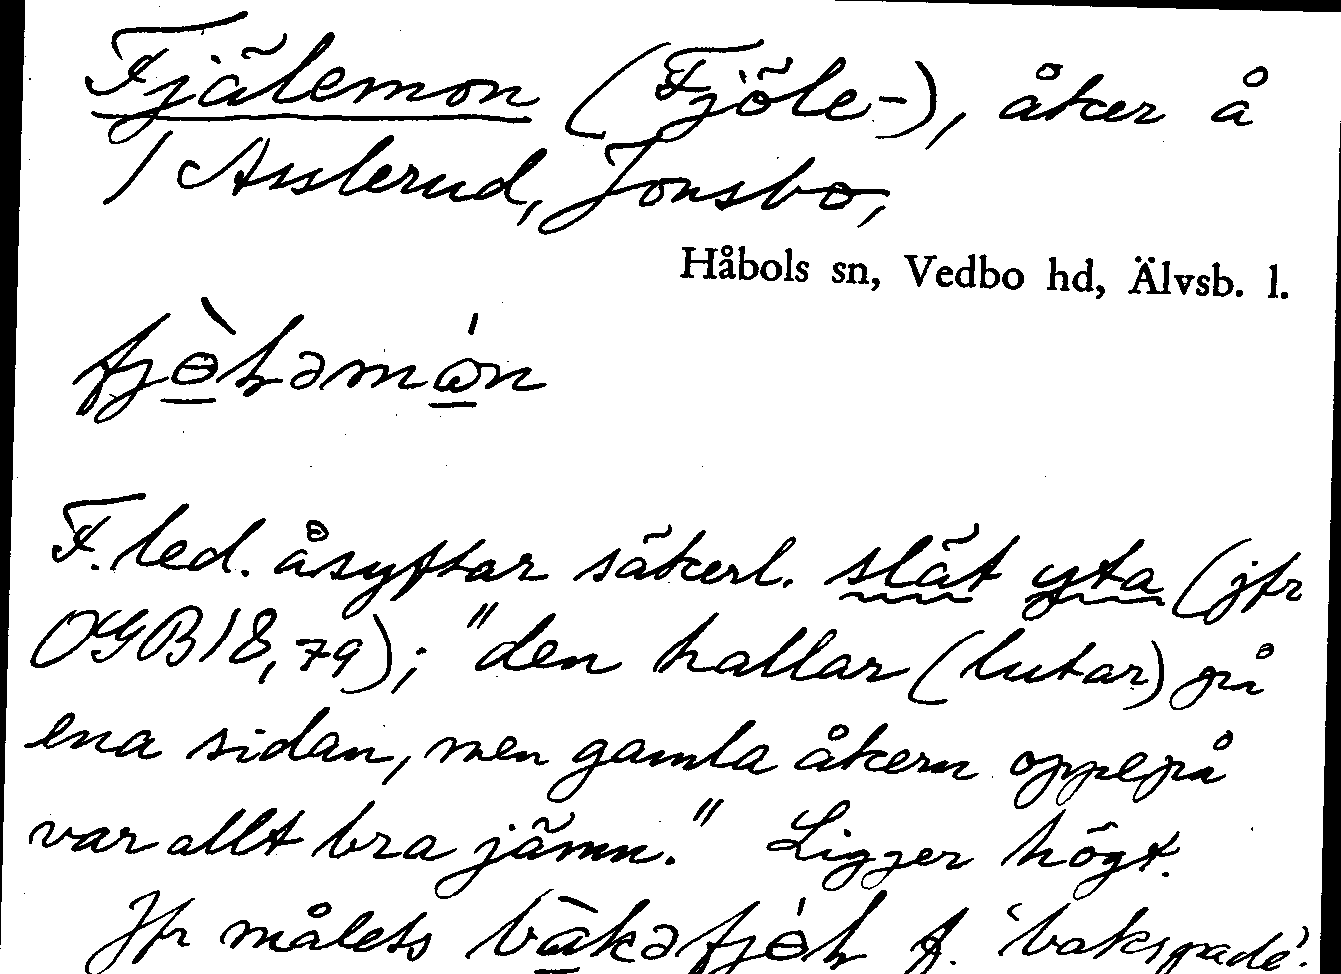 Fjälemon (Fjöle-), åker å
/ Asslerud, Jonsbo,
Håbols sn, Vedbo hd, Älvsb. l.
fjɵ̀ɫəmón
F. led. åsyftar säkerl. slät yta (jfr
OGB 18,79); "den hallar (lutar) på
ena sidan, men gamla åkern oppepå
var allt bra jämn." Ligger högt.
Jfr målets bàkəfjɵ́ɫ f. 'bakspade'.